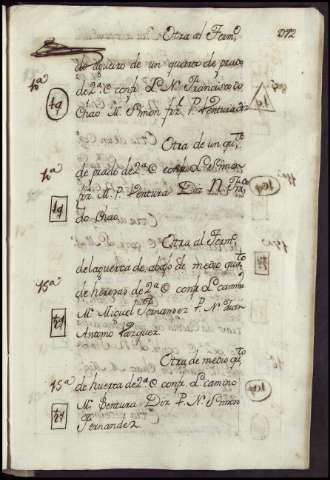 Otra al Ferm.o D72
do de un quarto de prado
10a de 2a C conf. L. N. Francisco do
1q Chao M. Simon frz P. Ventura Dz
Otra de un q.to
10a de prado de 2a C conf. L. Simon
frz M. P. Ventura Diz N. Fran.co
1q do Chao
Otra al Ferm.o
de la guerta de abajo de medio qu.to
15a de 2a C conf. L. camino
M. Miguel Fernandez P. N. Juan
Antonio Vazquez
Otra de medio q.to
15a de huerta de 2a C conf. L. camino
M. Bentura Diz P. N. Simon
Fernandez